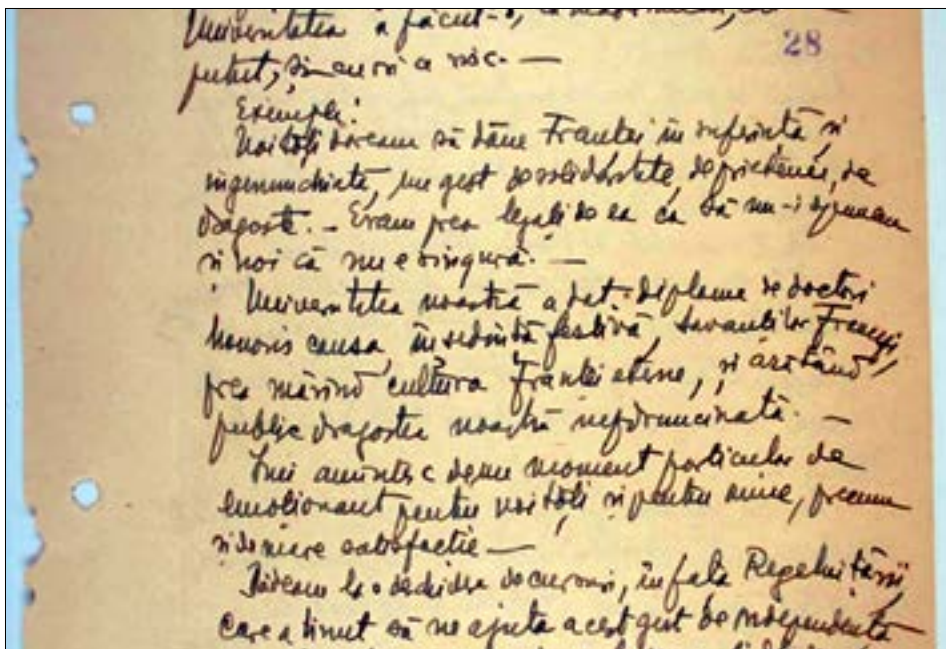 Universitatea a făcut-o,
28
putut, și cu ori ce risc. —
Exemplu:
Noi toți doream să dăm Franței în suferință, și
ingenunchiată, un gest de solidaritate, de prietenie, de
dragoste. – Eram prea legați de ea ca să nu-i spunem
și noi că nu e singură. —
Universitatea noastră a dat diplome de doctori
honoris causa, în ședință festivă, savanților Francezi,
prea mărind cultura Franței eterne, și arătând
public dragostea noastră nesdruncinată. —
Îmi amintesc de un moment particular de
emoționant pentru noi toți și pentru mine, precum
și de mare satisfacție —
la o deschidere de cursuri, în fața Regelui Țării,
care a ținut să ne ajute acest gest de independență